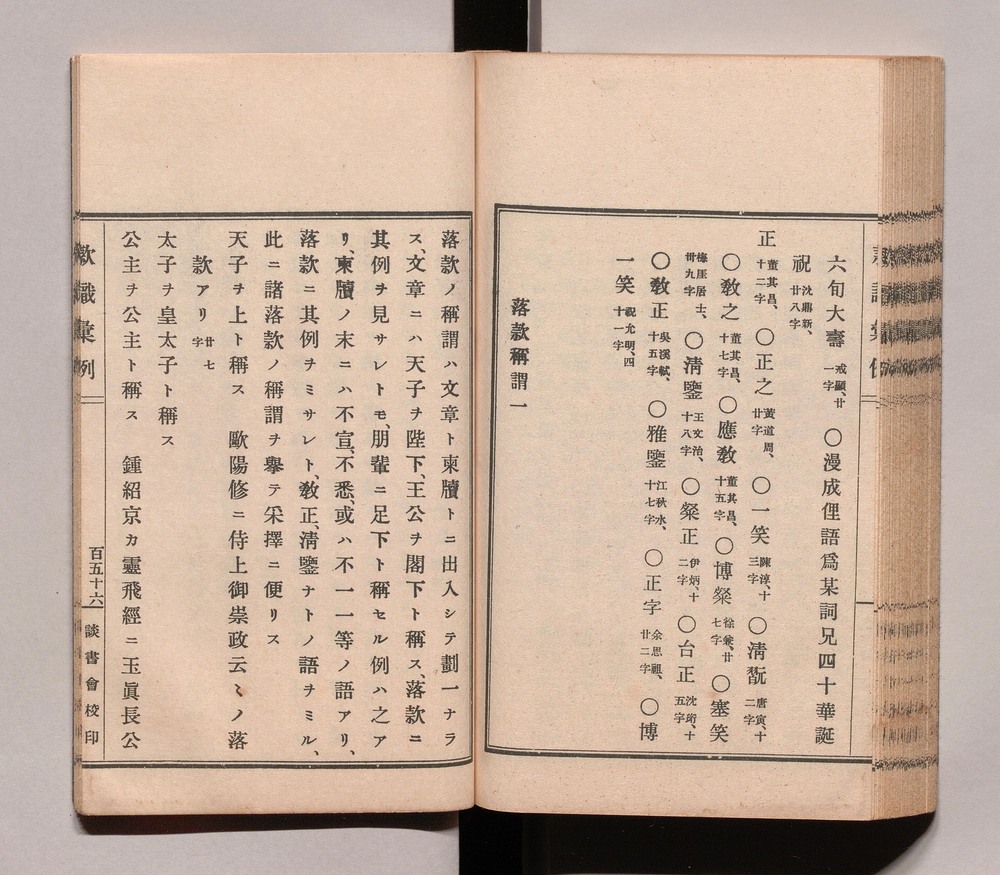 六旬大壽 戒顯、廿一字 ○漫成俚語爲某詞兄四十華誕
祝 沈鼎新、廿八字
正 董其昌、十二字 ○正之 黃道周、廿字 ○一笑 陳淳、十三字 ○淸翫 唐寅、十二字
○敎之 董其昌、十七字 ○應敎 董其昌、十五字 ○博粲 徐 、廿七字 ○塞笑
梅厓居士、卅九字 ○淸鑒 王文治、十八字 ○粲正 伊炳、十二字 ○台正 沈 、十五字
○敎正 吳溪 、十五字 ○雅鑒 江秋水、十七字 ○正字 余思祖、廿二字 ○博
一笑 祝允明、四十一字
落款稱謂一
落款ノ稱謂ハ文章ト柬牘トニ出入シテ劃一ナラ
ス、文章ニハ天子ヲ陛下、王公ヲ閣下ト稱ス、落款ニ
其例ヲ見サレトモ、朋輩ニ足下ト稱セル例ハ之ア
リ、柬牘ノ末ニハ不宣、不悉、或ハ不一一等ノ語アリ、
落款ニ其例ヲミサレト、敎正、淸鑒ナトノ語ヲミル、
此ニ諸落款ノ稱謂ヲ擧テ采擇ニ便リス
天子ヲ上ト稱ス 歐陽修ニ侍上御崇政云〻ノ落
款アリ 廿七字
太子ヲ皇太子ト稱ス
公主ヲ公主ト稱ス 鍾紹京カ靈飛經ニ玉眞長公
款識彙例
百五十六
談書會校印